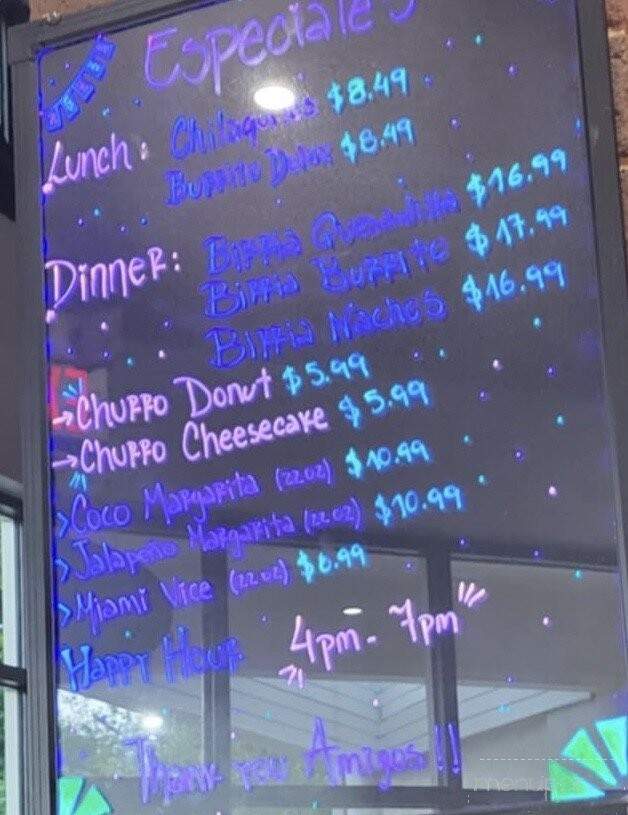 Especiales
Lunch: Chilaquiles $8.49
Burrito Delux $8.49
Dinner: Birria Quesadilla $16.99
Birria Burrito $17.99
Birria Nachos $16.99
→Churro Donut $5.99
→Churro Cheesecake $5.99
>Coco Margarita (22oz) $10.99
>Jalapeño Margarita (22oz) $10.99
>Miami Vice (22oz) $6.99
Happy Hour 4pm - 7pm
Thank you Amigos!!